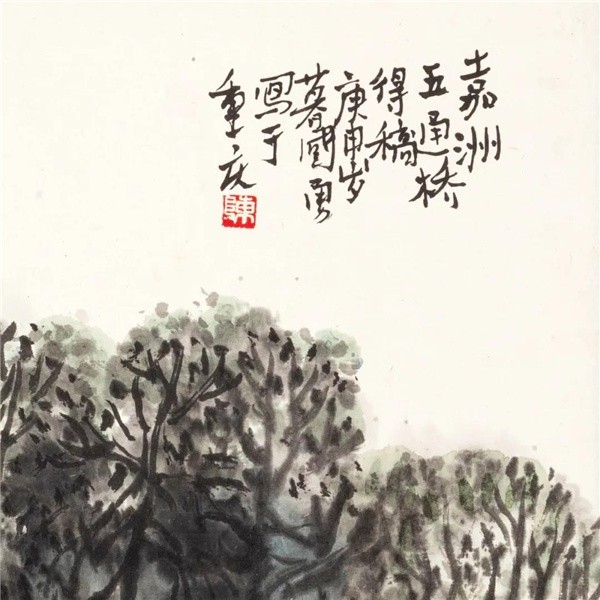 嘉洲
五通桥
得稿
庚申岁
暮國勇
寫于
重庆
陳